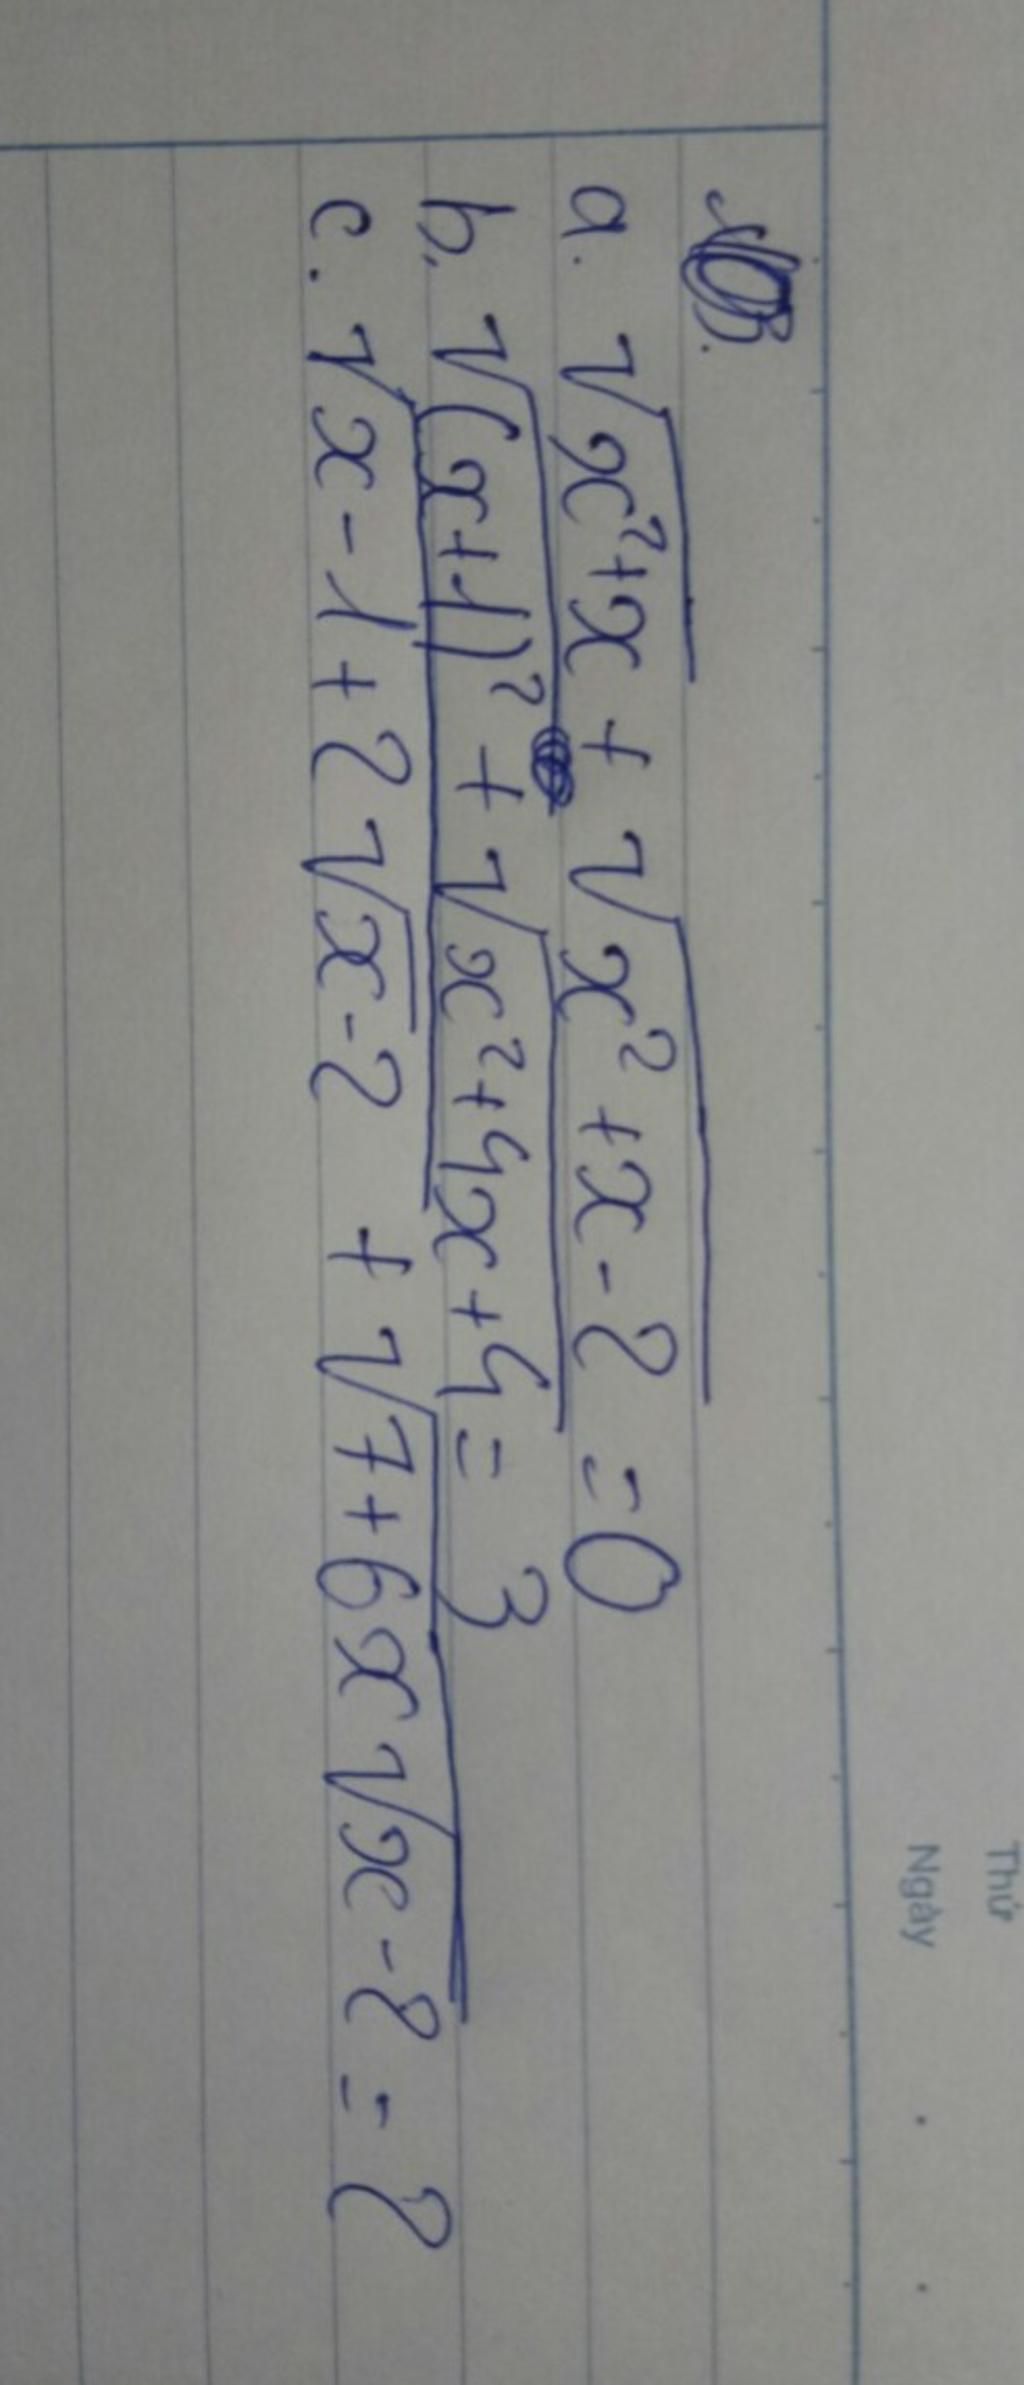 Thứ
Ngày
B.
a. √(x²+x) + √(x²+x-2) = 0
b. √((x+1)²) + √(x²+4x+4) = 3
c. √(x-1+2√(x-2)) + √(7+6x√(x-2)) = 2